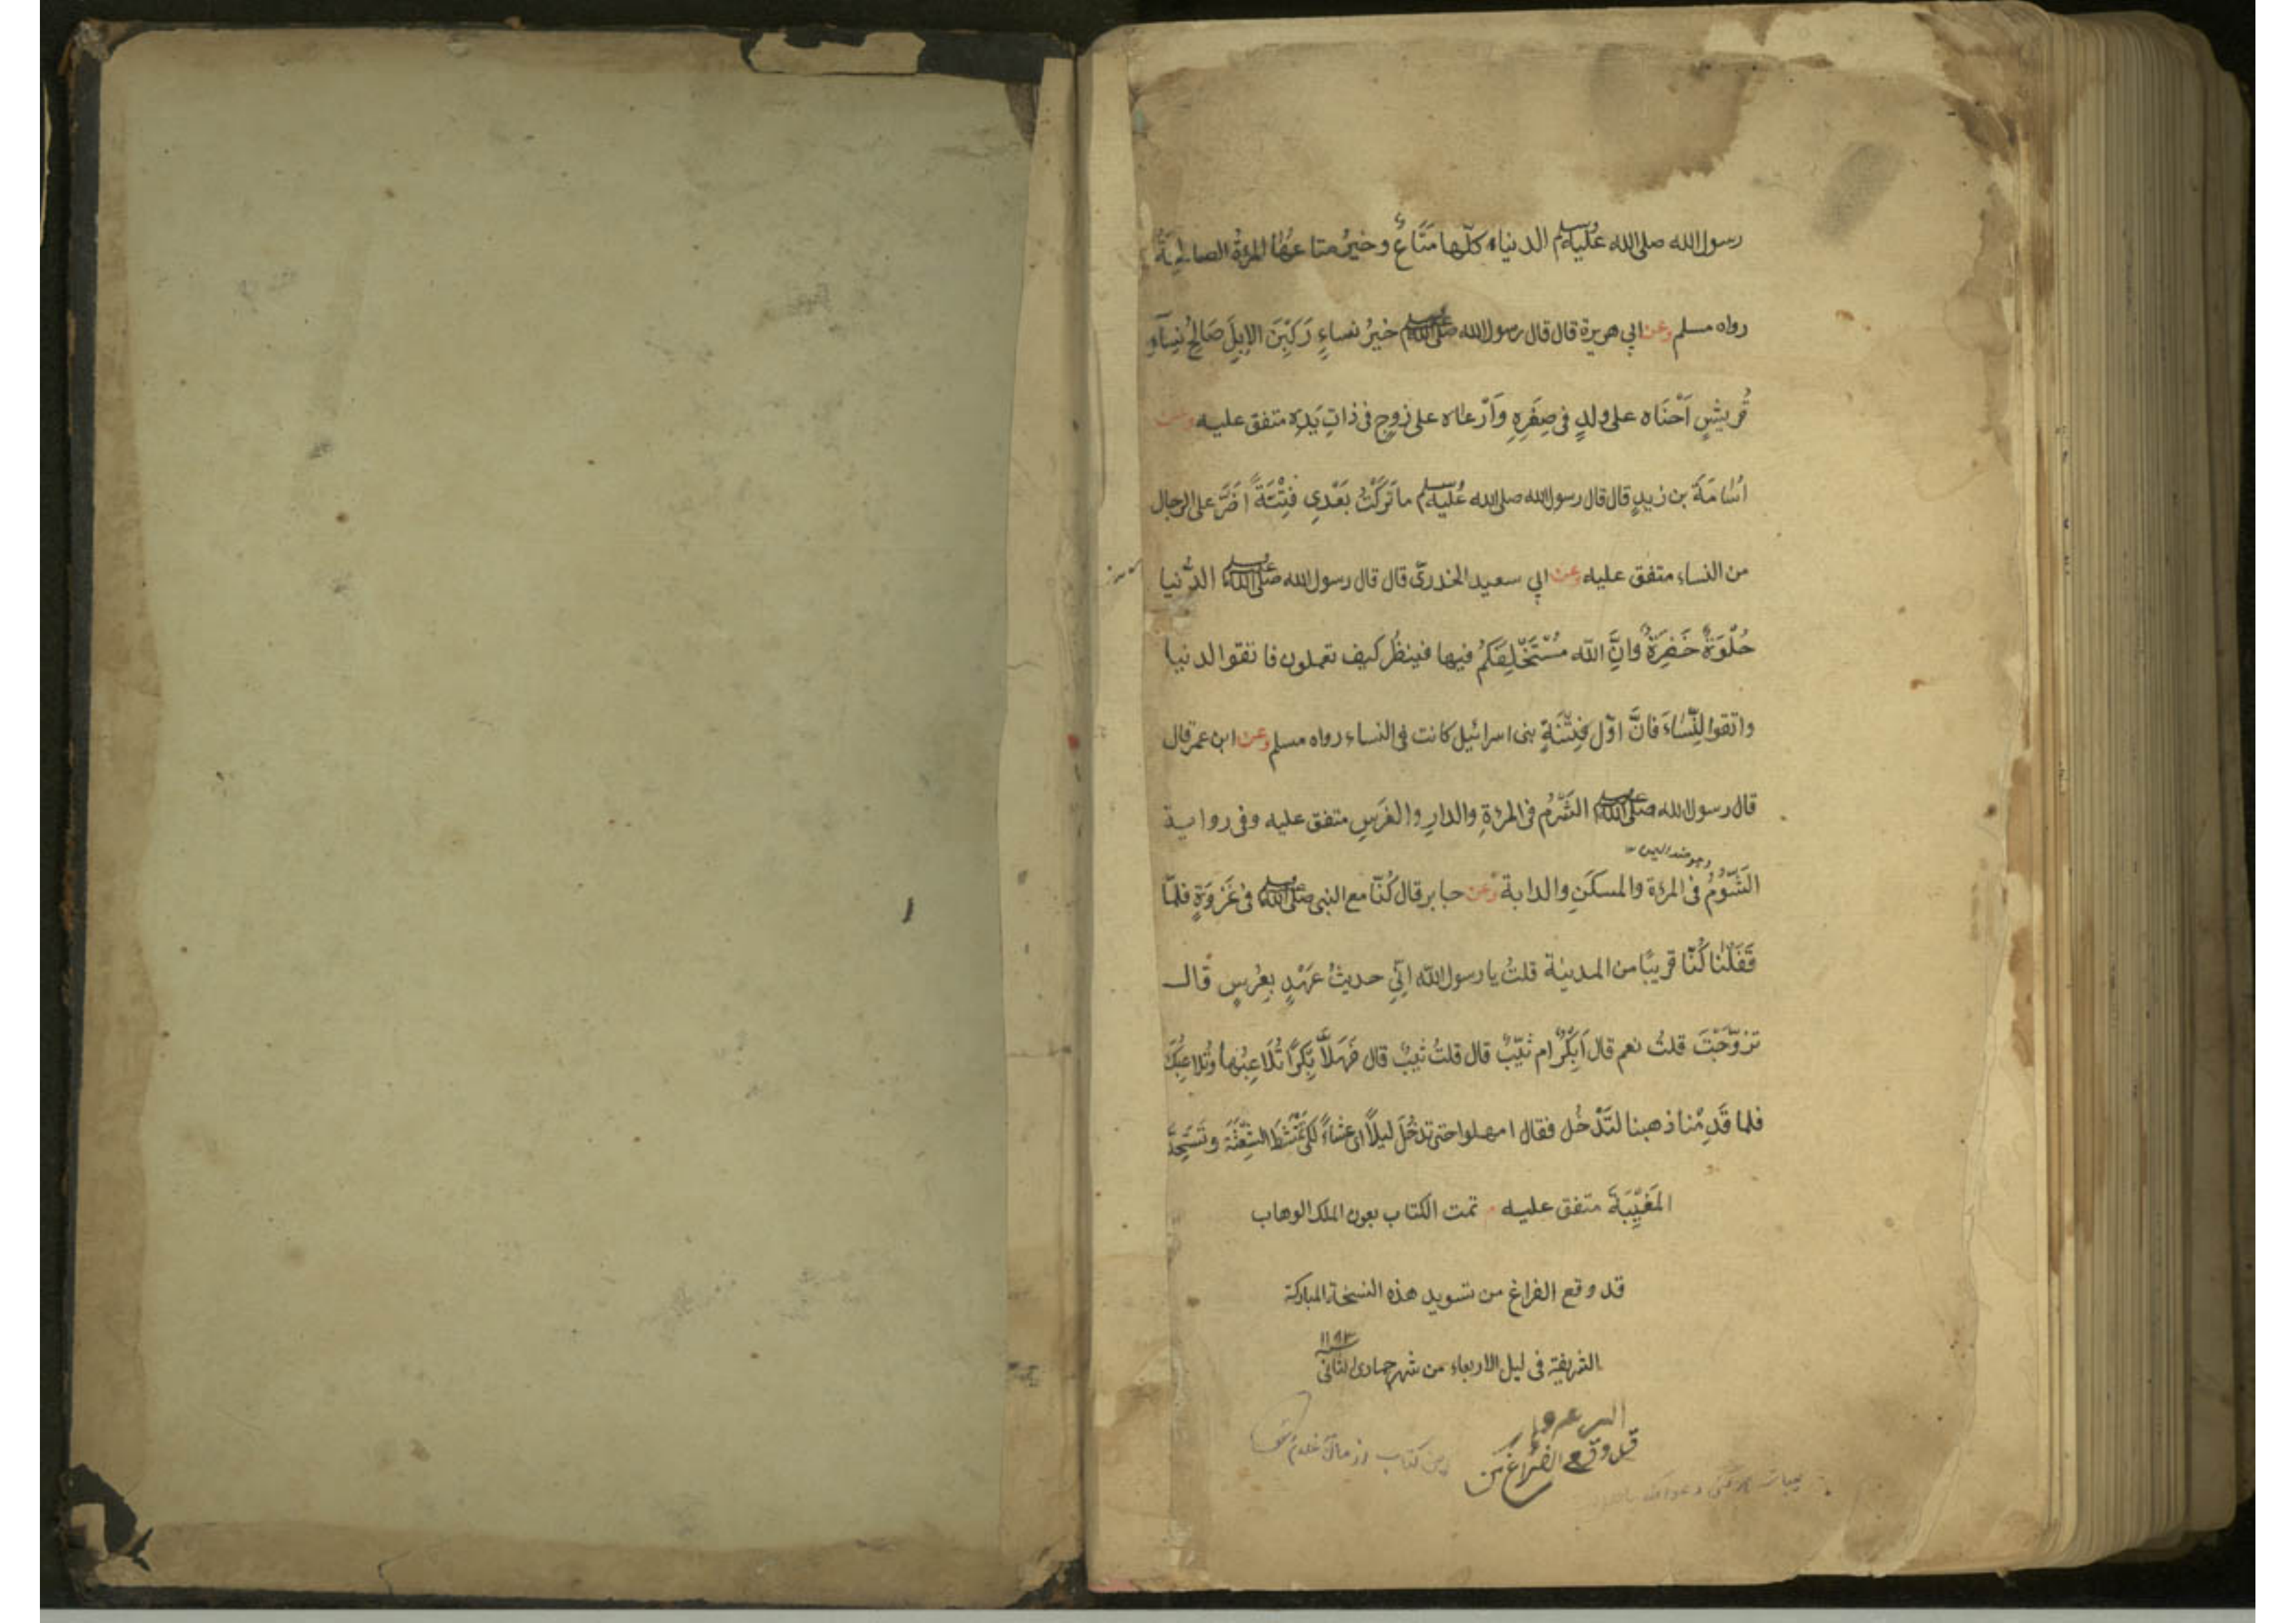 رسول الله صلى الله عليه وسلم الدنيا كلّها مَتَاعٌ وخيرُ متاعها المرءةُ الصالحةُ
رواه مسلم وعن ابي هريرة قال قال رسول الله صلى الله عليه وسلم خيرُ نساءٍ رَكِبْنَ الاِبِلَ صَالِحُ نِسَآءِ
قُريشٍ اَحْنَاه على ولدٍ فى صِغَرِهِ وَاَرْعاه على زوجٍ فى ذاتِ يَدِهِ متفق عليه وعن
اُسَامَةَ بن زيدٍ قال قال رسول الله صلى الله عليه وسلم ما تَرَكْتُ بَعْدِي فِتْنَةً اَضَرَّ على الرجال
من النساء متفق عليه وعن ابي سعيد الخدرىّ قال قال رسول الله صلى الله عليه وسلم الدُّنيا
حُلْوَةٌ خَضِرَةٌ وَاِنَّ الله مُسْتَخْلِفُكُمْ فيها فينظُر كيف تعملون فاتقوا الدنيا
واتقوا النِّسَاءَ فَانَّ اوّل فِتْنَةِ بنى اسرائيل كانت فى النساء رواه مسلم وعن ابن عمر قال
قال رسول الله صلى الله عليه وسلم الشُّؤمُ فى المرءةِ والدارِ والفَرَسِ متفق عليه وفى رواية
الشُّؤمُ فى المرءة والمسكَنِ والدابة وعن جابر قال كُنّا مع النبى صلى الله عليه وسلم فى غَزْوَةٍ فلمّا
قَفَلْنا كُنّا قريبًا من المدينة قلتُ يا رسول الله اِنّى حديثُ عَهْدٍ بِعُرسٍ قال
تزوّجْتَ قلتُ نعم قال اَبِكْرٌ ام ثيّبٌ قال قلتُ ثيبٌ قال فَهَلاَّ بِكْرًا تُلَاعِبُها وتُلاعِبُكَ
فلما قَدِمْنا ذهبنا لنَدْخُل فقال امهلوا حتى ندخُلَ ليلاً اى عشاءً لكى تَمْتَشِطَ الشَّعِثَةُ وتَسْتَحِدَّ
المَغِيْبَةَ متفق عليه تمت الكتاب بعون الملك الوهاب
قد وقع الفراغ من تسويد هذه النسخة المباركة
الشريفة فى ليل الاربعاء من شهر جمادى الثانى
قد وقع الفراغ من